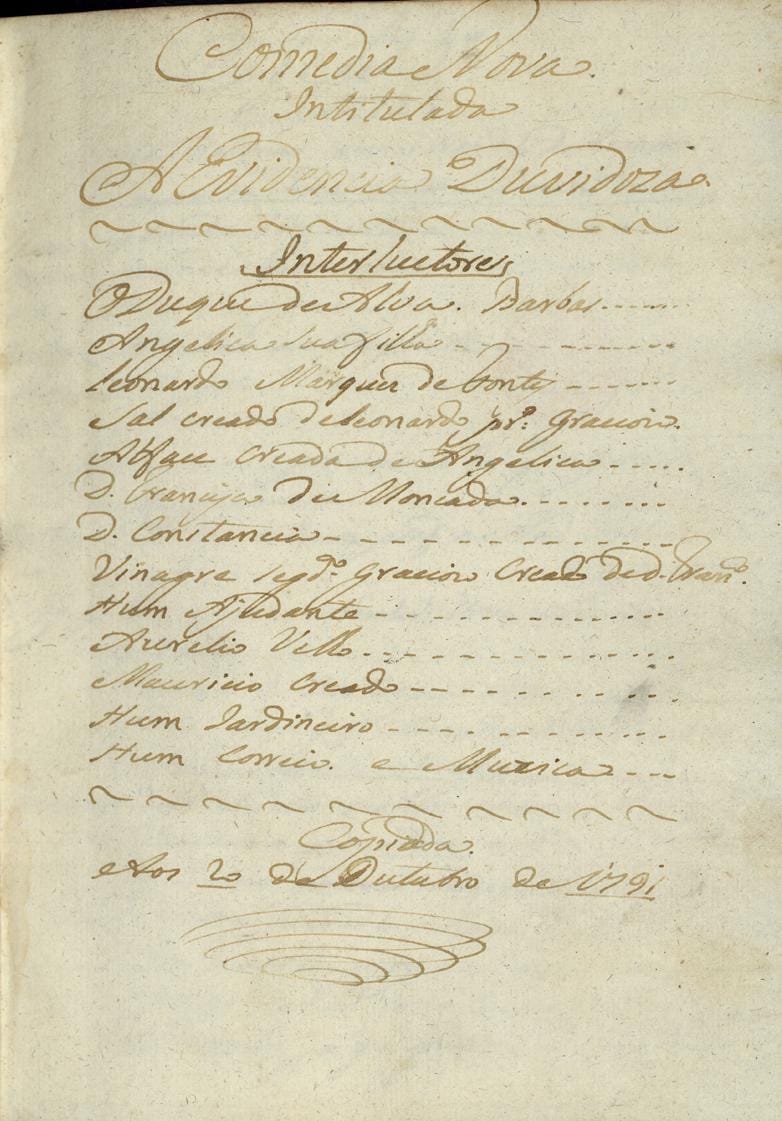 Comedia Nova.
Intitulada
A Evidencia Duvidoza
Interluctores
O Duque de Alva. Barbas
Angelica sua filla
Leonardo Marques de
Sal creado de Leonardo pr.º Gracioso.
Alface Creada de Angelica
D. Francisco de Moncada
D. Constancia
Vinagre segd.º Gracioso Creado de D. Fran.º
Hum Ajudante
Aurelio Vello
Mauricio Creado
Hum Jardineiro
Hum Correio. e Muzica
Copiada.
Aos 20 de Outubro de 1791